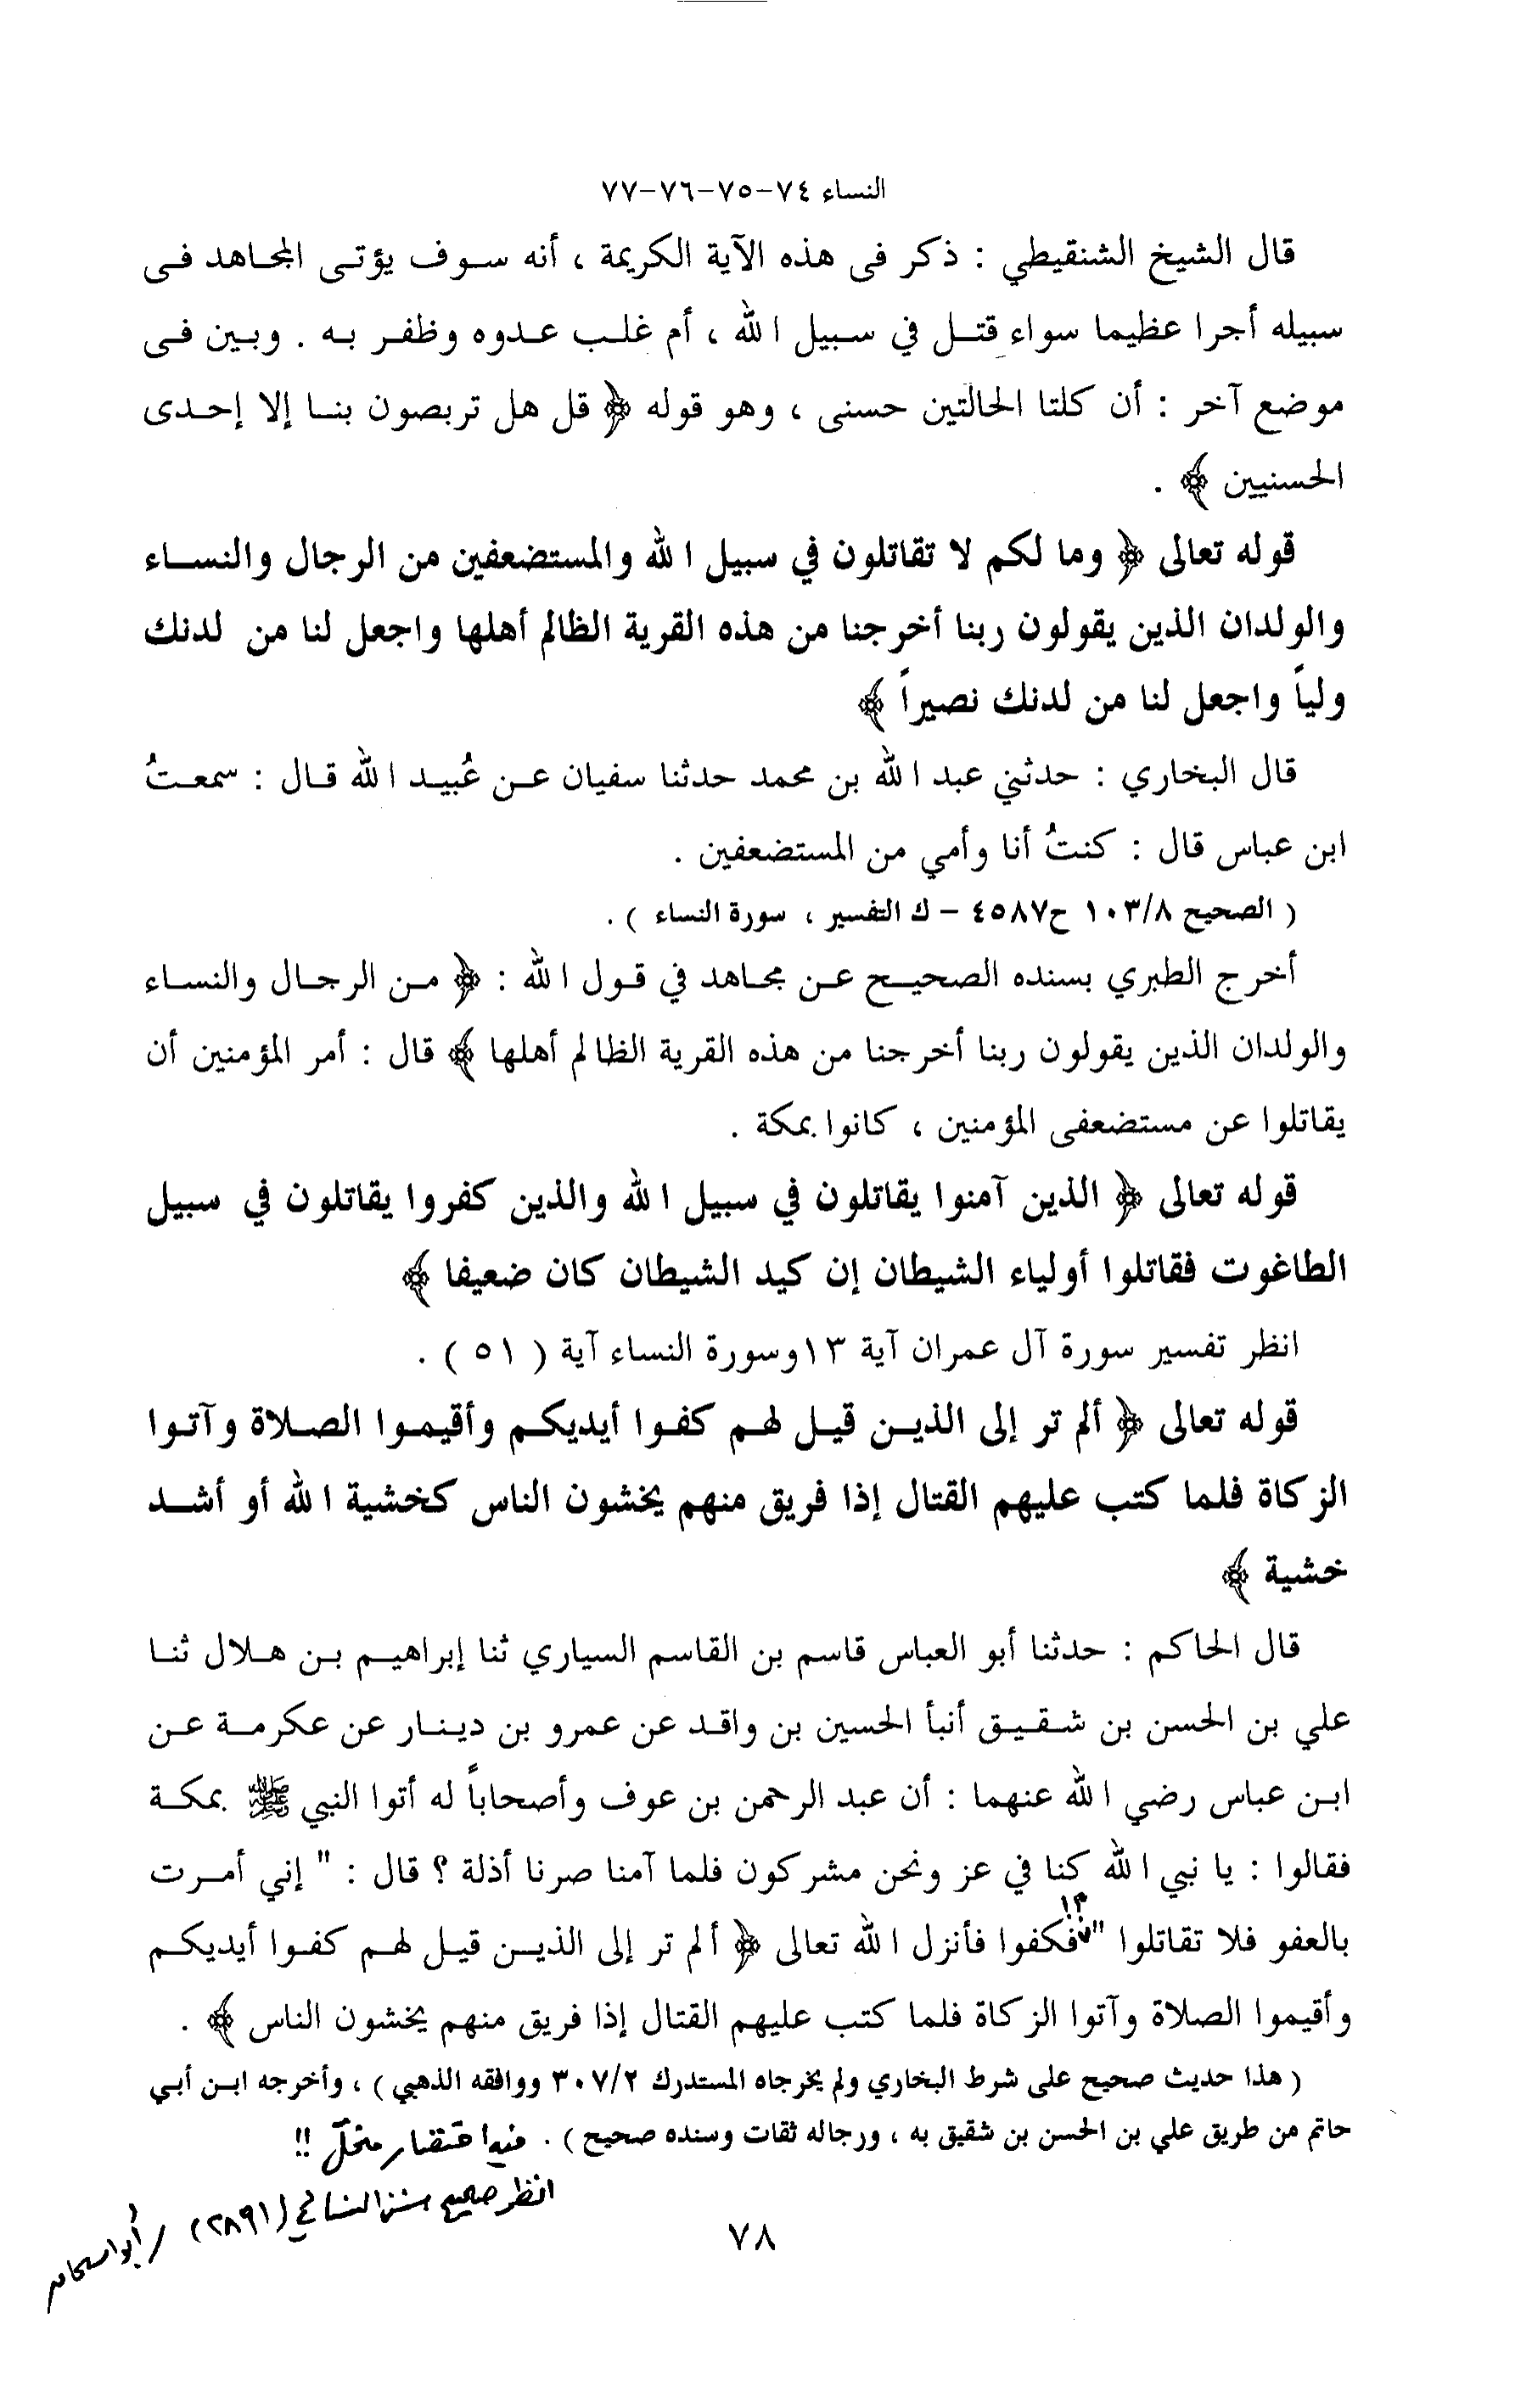 النساء ٧٤-٧٥-٧٦-٧٧
قال الشيخ الشنقيطي : ذكر فى هذه الآية الكريمة ، أنه سوف يؤتى المجاهد فى
سبيله أجرا عظيما سواء قتل في سبيل الله ، أم غلب عدوه وظفر به . وبين فى
موضع آخر : أن كلتا الحالتين حسنى ، وهو قوله ﴿ قل هل تربصون بنا إلا إحدى
الحسنيين ﴾ .
قوله تعالى ﴿ وما لكم لا تقاتلون في سبيل الله والمستضعفين من الرجال والنساء
والولدان الذين يقولون ربنا أخرجنا من هذه القرية الظالم أهلها واجعل لنا من لدنك
ولياً واجعل لنا من لدنك نصيراً ﴾
قال البخاري : حدثني عبد الله بن محمد حدثنا سفيان عن عُبيد الله قال : سمعتُ
ابن عباس قال : كنتُ أنا وأمي من المستضعفين .
( الصحيح ١٠٣/٨ ح٤٥٨٧ - ك التفسير ، سورة النساء ) .
أخرج الطبري بسنده الصحيح عن مجاهد في قول الله : ﴿ من الرجال والنساء
والولدان الذين يقولون ربنا أخرجنا من هذه القرية الظالم أهلها ﴾ قال : أمر المؤمنين أن
يقاتلوا عن مستضعفى المؤمنين ، كانوا بمكة .
قوله تعالى ﴿ الذين آمنوا يقاتلون في سبيل الله والذين كفروا يقاتلون في سبيل
الطاغوت فقاتلوا أولياء الشيطان إن كيد الشيطان كان ضعيفا ﴾
انظر تفسير سورة آل عمران آية ١٣ وسورة النساء آية ( ٥١ ) .
قوله تعالى ﴿ ألم تر إلى الذين قيل لهم كفوا أيديكم وأقيموا الصلاة وآتوا
الزكاة فلما كتب عليهم القتال إذا فريق منهم يخشون الناس كخشية الله أو أشد
خشية ﴾
قال الحاكم : حدثنا أبو العباس قاسم بن القاسم السياري ثنا إبراهيم بن هلال ثنا
علي بن الحسن بن شقيق أنبأ الحسين بن واقد عن عمرو بن دينار عن عكرمة عن
ابن عباس رضي الله عنهما : أن عبد الرحمن بن عوف وأصحاباً له أتوا النبي ﷺ بمكة
فقالوا : يا نبي الله كنا في عز ونحن مشركون فلما آمنا صرنا أذلة ؟ قال : " إني أمرت
بالعفو فلا تقاتلوا " فكفوا فأنزل الله تعالى ﴿ ألم تر إلى الذين قيل لهم كفوا أيديكم
وأقيموا الصلاة وآتوا الزكاة فلما كتب عليهم القتال إذا فريق منهم يخشون الناس ﴾ .
( هذا حديث صحيح على شرط البخاري ولم يخرجاه المستدرك ٣٠٧/٢ ووافقه الذهبي ) ، وأخرجه ابن أبي
حاتم من طريق علي بن الحسن بن شقيق به ، ورجاله ثقات وسنده صحيح ) . فيه اختصار مخلّ !!
انظر صحيح سنن النسائي (٢٨٩١) / أبو
٧٨